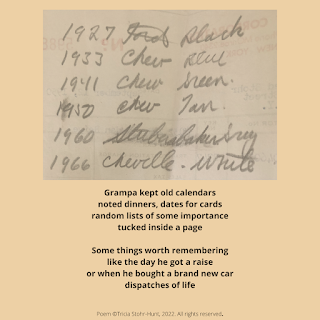 1927 Ford Black
1933 Chev Blue
1941 Chev Green.
1950 Chev Tan
1960 Studebaker Grey
1966 Chevelle - White
Grampa kept old calendars
noted dinners, dates for cards
random lists of some importance
tucked inside a page
Some things worth remembering
like the day he got a raise
or when he bought a brand new car
dispatches of life
Poem ©Tricia Stohr-Hunt, 2022. All rights reserved.